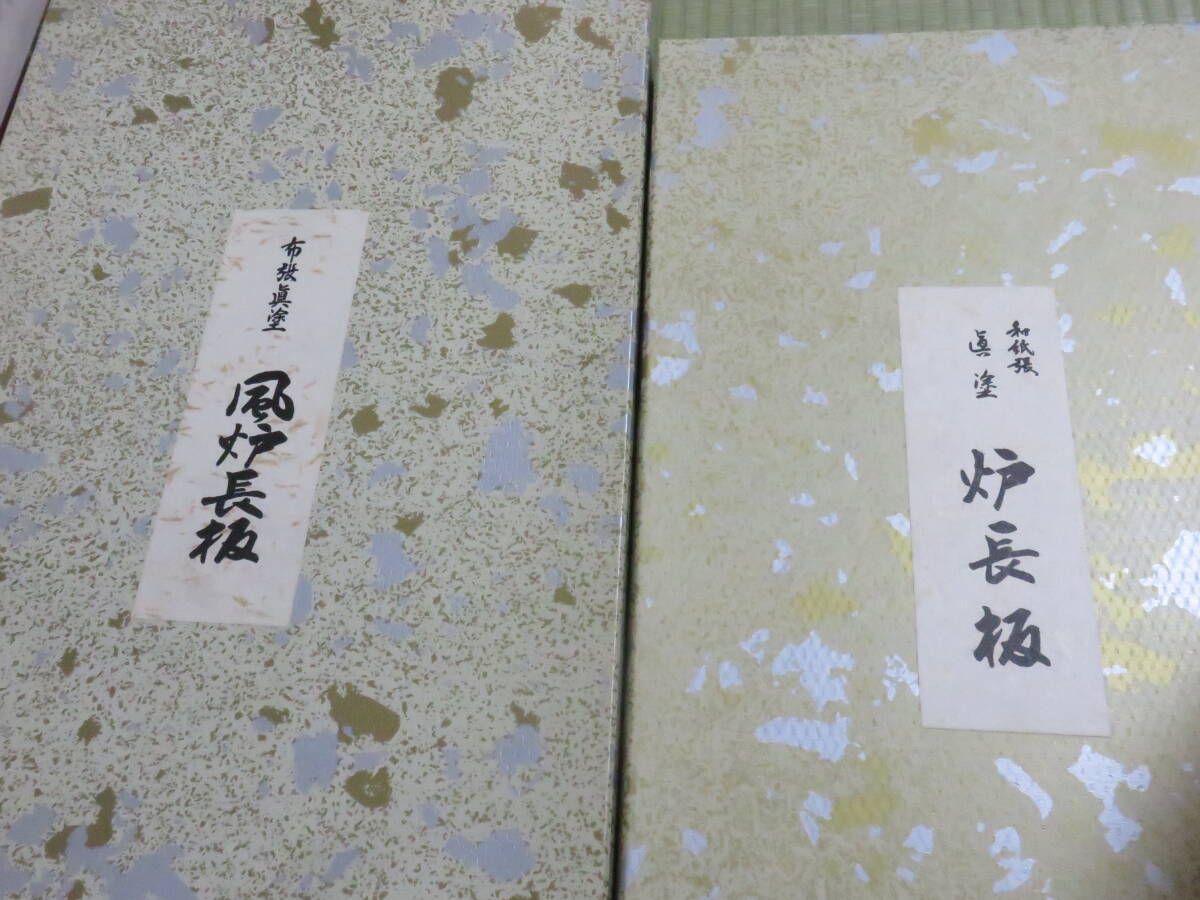 布張眞塗
風炉長板
和紙張
眞塗
炉長板